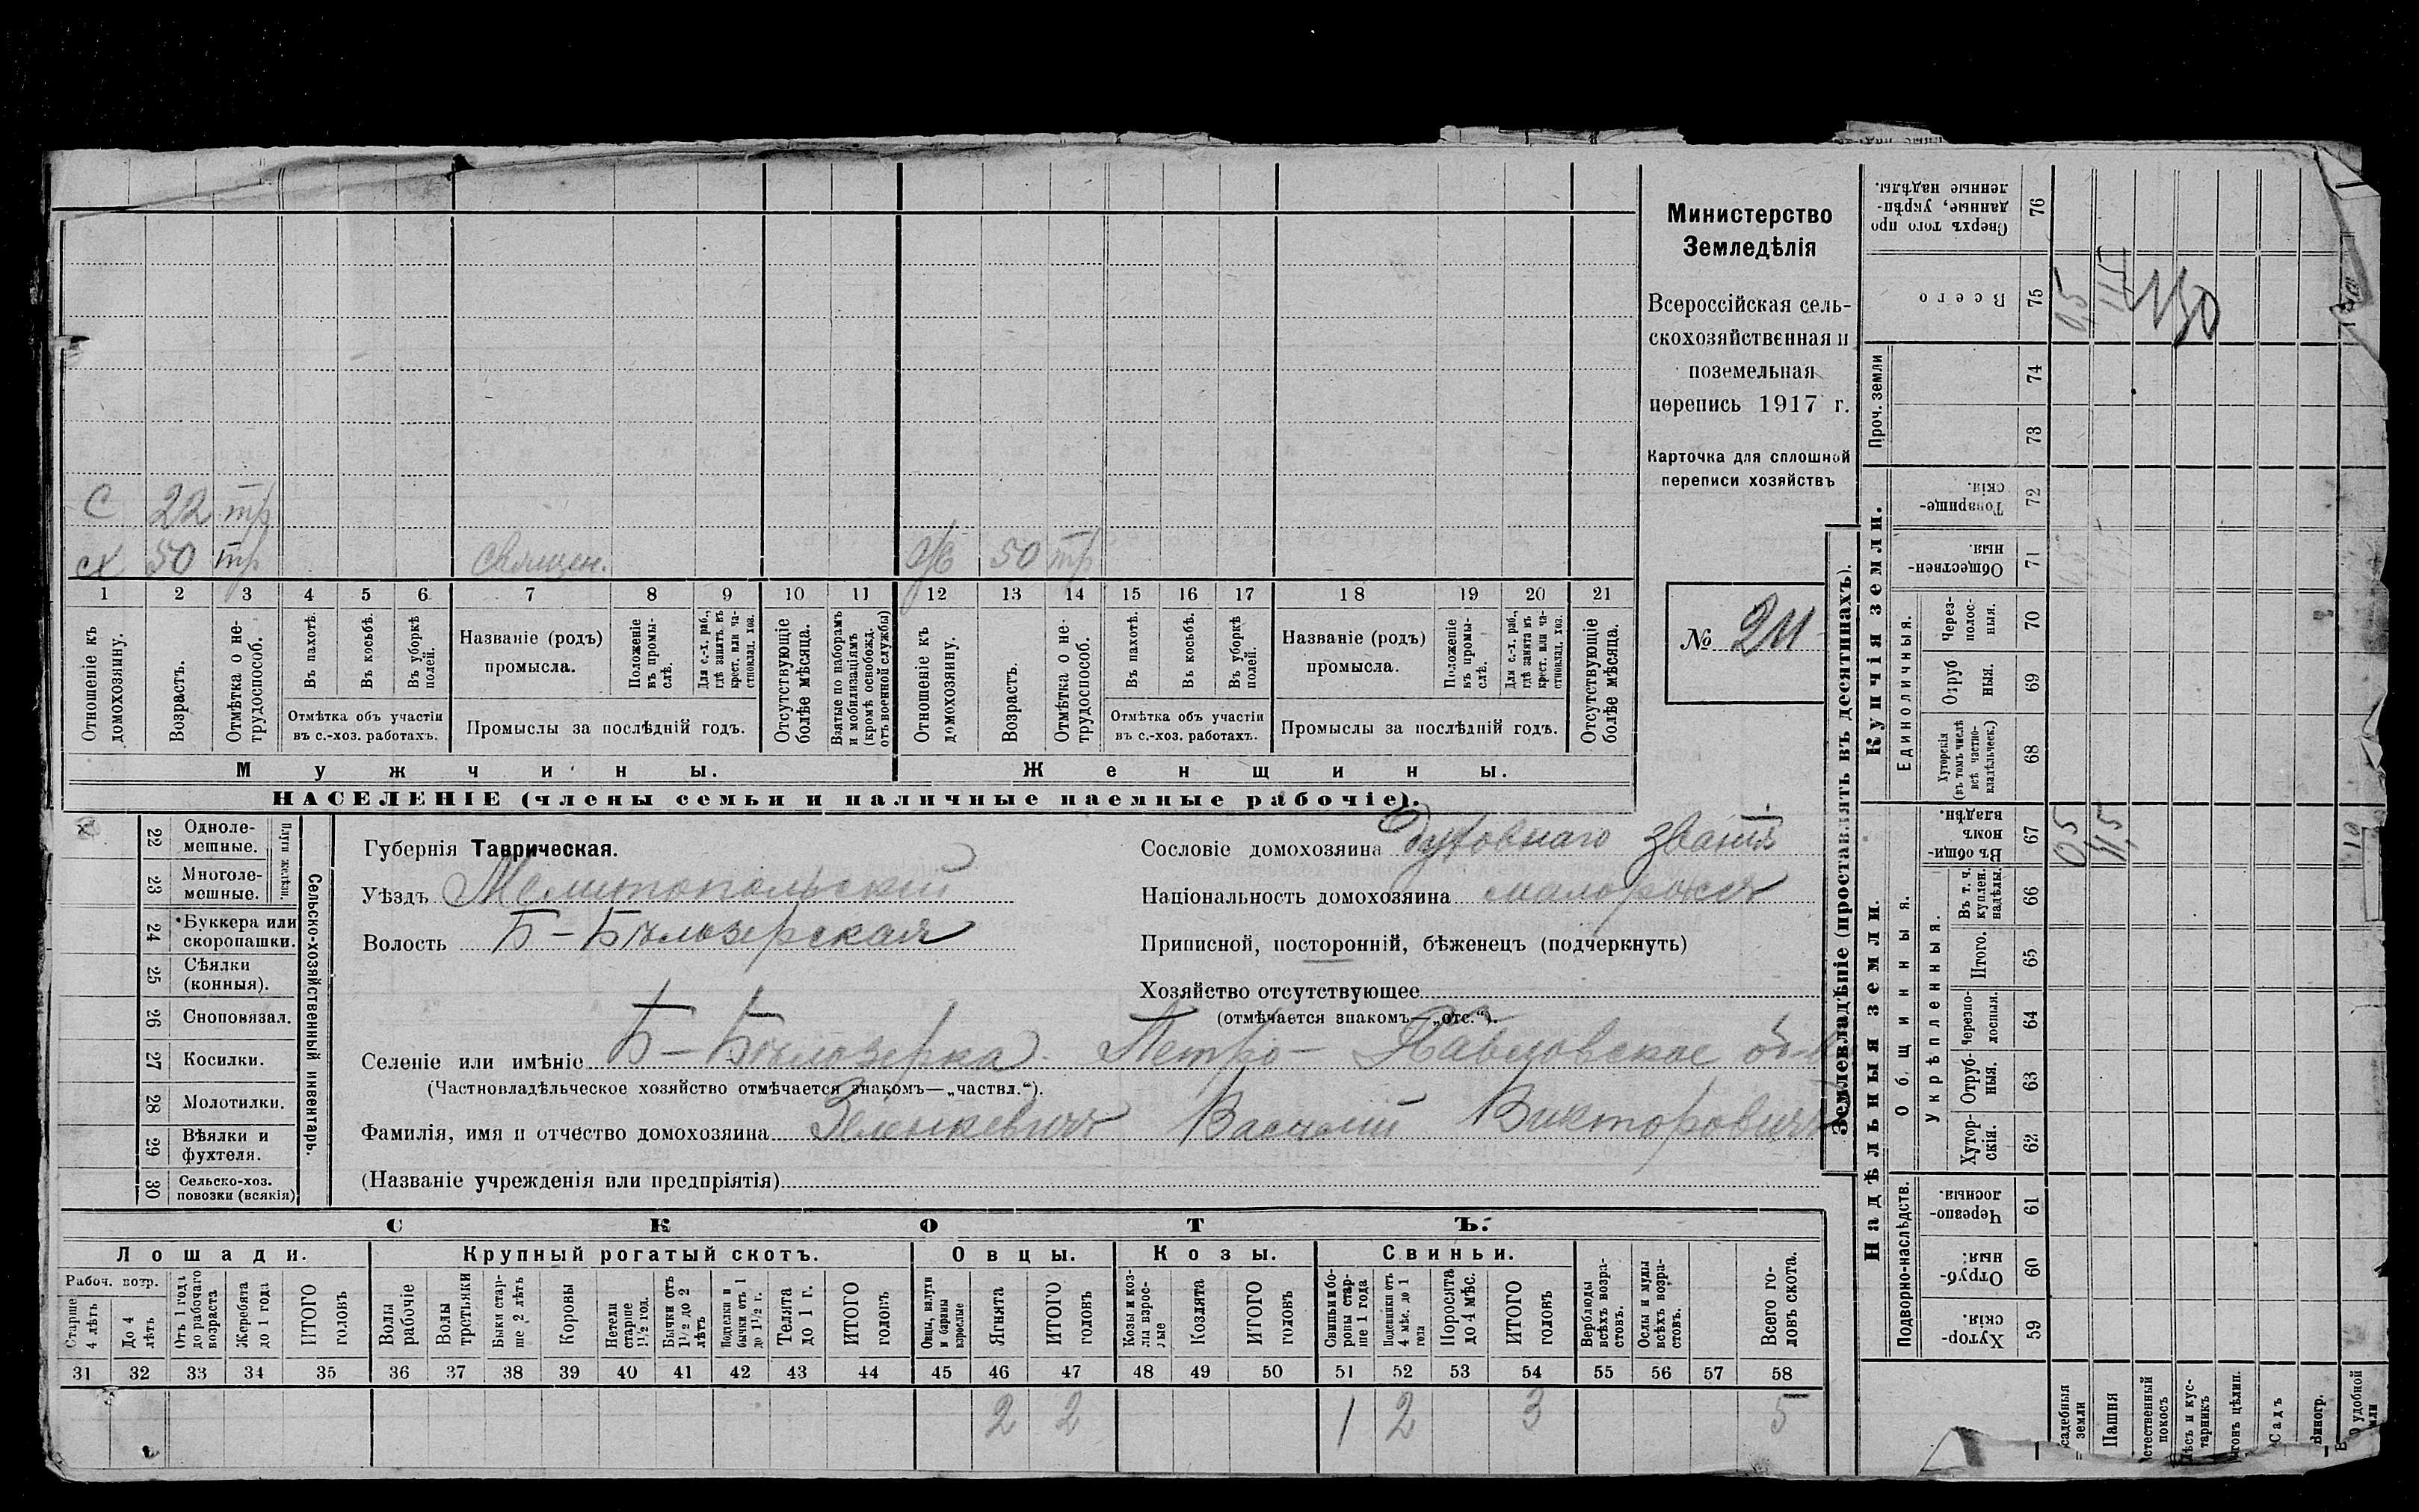 Министерство
Земледѣлія
Всероссійская сель-
скохозяйственная и
поземельная
перепись 1917 г.
Карточка для сплошной
переписи хозяйствъ
№ 211
С 22 тр
сх 50 тр священ. 50 тр
1 2 3 4 5 6 7 8 9 10 11 12 13 14 15 16 17 18 19 20 21
Отношеніе къ домохозяину.
Возрастъ.
Отмѣтка о не-трудоспособ.
Въ пахотѣ.
Въ косьбѣ.
Въ уборкѣ полей.
Отмѣтка объ участіи
въ с.-хоз. работахъ.
Названіе (родъ)
промысла.
Положеніе въ промы-слѣ.
Для с.-х. раб., гдѣ занятъ въ крест. или ча-стновлад. хоз.
Промыслы за послѣдній годъ.
Отсутствующіе болѣе мѣсяца.
Взятые по наборамъ и мобилизаціямъ (кромѣ освобожд. отъ военной службы)
Отношеніе къ домохозяину.
Возрастъ.
Отмѣтка о не-трудоспособ.
Въ пахотѣ.
Въ косьбѣ.
Въ уборкѣ полей.
Отмѣтка объ участіи
въ с.-хоз. работахъ.
Названіе (родъ)
промысла.
Положеніе въ промы-слѣ.
Для с.-х. раб., гдѣ занята въ крест. или ча-стновлад. хоз.
Промыслы за послѣдній годъ.
Отсутствующіе болѣе мѣсяца.
Мужчины. Женщины.
НАСЕЛЕНІЕ (члены семьи и наличные наемные рабочіе).
Сельско-хозяйственный инвентарь.
22 Одноле-мешные.
23 Многоле-мешные.
24 Буккера или скоропашки.
25 Сѣялки (конныя).
26 Сноповязал.
27 Косилки.
28 Молотилки.
29 Вѣялки и фухтеля.
30 Сельско-хоз. повозки (всякія)
Губернія Таврическая.
Уѣздъ Мелитопольскій
Волость Б-Бѣлозерская
Сословіе домохозяина духовнаго званія
Національность домохозяина малороссъ
Приписной, посторонній, бѣженецъ (подчеркнуть)
Хозяйство отсутствующее
(отмѣчается знакомъ—„отс.“).
Селеніе или имѣніе Б-Бѣлозерка. Петро-Павловское
(Частновладѣльческое хозяйство отмѣчается знакомъ—„частвл.“).
Фамилія, имя и отчество домохозяина Зеленкевичъ Василій Викторовичъ
(Названіе учрежденія или предпріятія)
СКОТЪ.
Лошади. Крупный рогатый скотъ. Овцы. Козы. Свиньи.
Рабоч. возр.
Старше 4 лѣтъ
До 4 лѣтъ
Отъ 1 года до рабочаго возраста
Жеребята до 1 года
ИТОГО головъ
Волы рабочіе
Волы третьяки
Быки стар-ше 2 лѣтъ
Коровы
Нетели старше 1½ год.
Бычки отъ 1½ до 2 лѣтъ
Подтелки и бычки отъ 1 до 1½ г.
Телята до 1 г.
ИТОГО головъ
Овцы, валухи и бараны взрослые
Ягнята
ИТОГО головъ
Козы и коз-лы взрос-лые
Козлята
ИТОГО головъ
Свиньи и бо-ровы стар-ше 1 года
Подсвинки отъ 4 мѣс. до 1 года
Поросята до 4 мѣс.
ИТОГО головъ
Верблюды всѣхъ возра-стовъ.
Ослы и мулы всѣхъ возра-стовъ.
Всего го-ловъ скота.
31 32 33 34 35 36 37 38 39 40 41 42 43 44 45 46 47 48 49 50 51 52 53 54 55 56 57 58
2 2 1 2 3 5
Землевладѣніе (проставлять въ десятинахъ).
Надѣльныя земли. Купчія земли. Проч. земли
Подворно-наслѣдств.
Общинныя.
Укрѣпленныя.
Единоличныя.
Хутор-скія. 59
Отруб-ныя. 60
Черезпо-лосныя. 61
Хутор-скія. 62
Отруб-ныя. 63
Черезпо-лосныя. 64
Итого. 65
Въ т. ч. куплен. надѣлы. 66
Въ общин-номъ владѣн. 67
Хуторскія (въ томъ числѣ всѣ частно-владѣльческ.) 68
Отруб-ныя. 69
Через-полос-ныя. 70
Обществен-ныя. 71
Товарище-скія. 72
73
74
Всего 75
Сверхъ того про-данные, укрѣп-ленные надѣлы. 76
0,5 11,5
0,5 11,5
садебныя земли
Пашня
стественный покосъ
ѣсъ и кус-тарникъ
Садъ
Виногр.
удобной